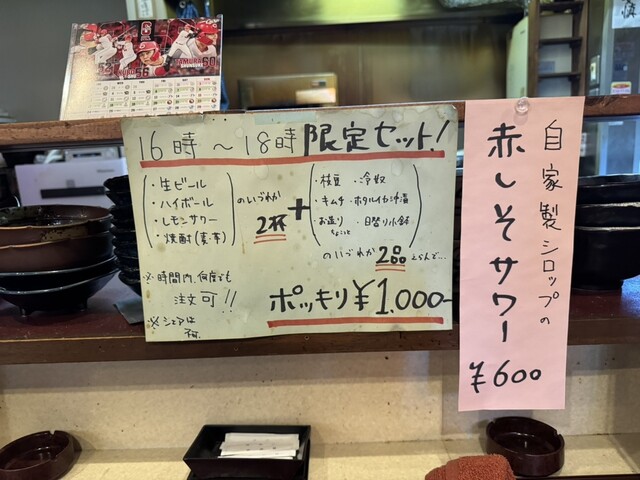 16時～18時 限定セット!
・生ビール
・ハイボール
・レモンサワー
・焼酎(麦・芋)
のいづれか
2杯
+
・枝豆 ・冷奴
・キムチ ・ホタルイカ沖漬
・お造り ・日替り小鉢
ちょこっと
のいづれか 2品 とらんで...
ポッキリ ¥1,000-
※時間内、何度でも
注文可!!
※シェアは
不可。
自家製シロップの
赤しそサワー
¥600
56
60